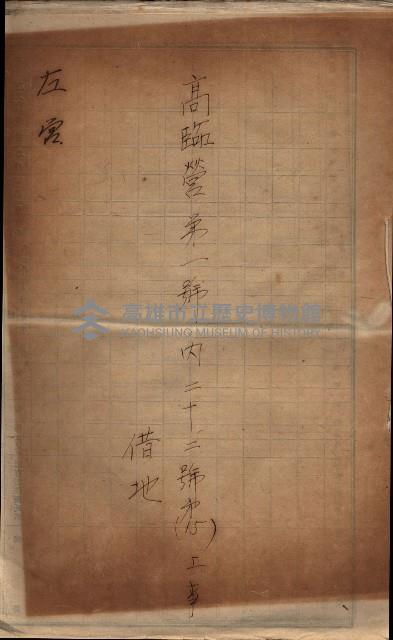 高臨營第一號內二十三號第(15)工事
借地
左営
高雄市立歷史博物館
KAOHSIUNG MUSEUM OF HISTORY